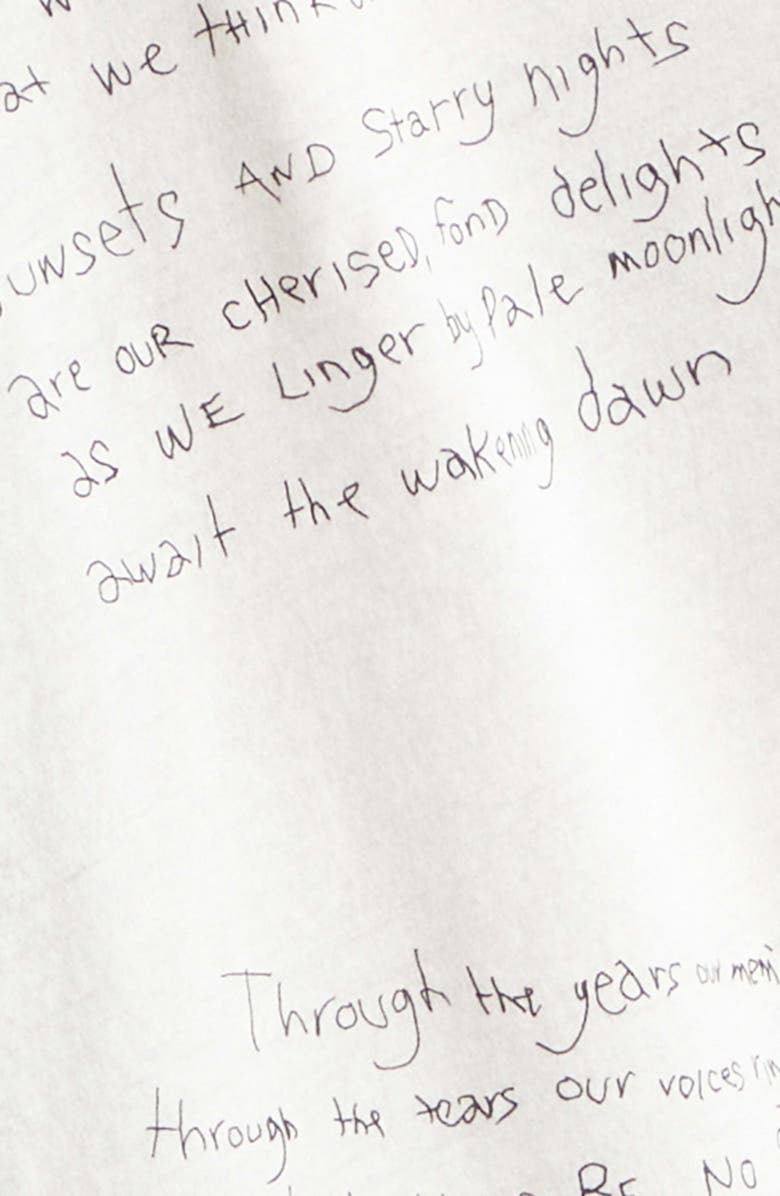 at we think
sunsets AND Starry nights
are our cHerised, fonD delights
as WE Linger by Pale moonligh
await the wakening dawn
Through the years our mem
through the tears our voices rin
Be No